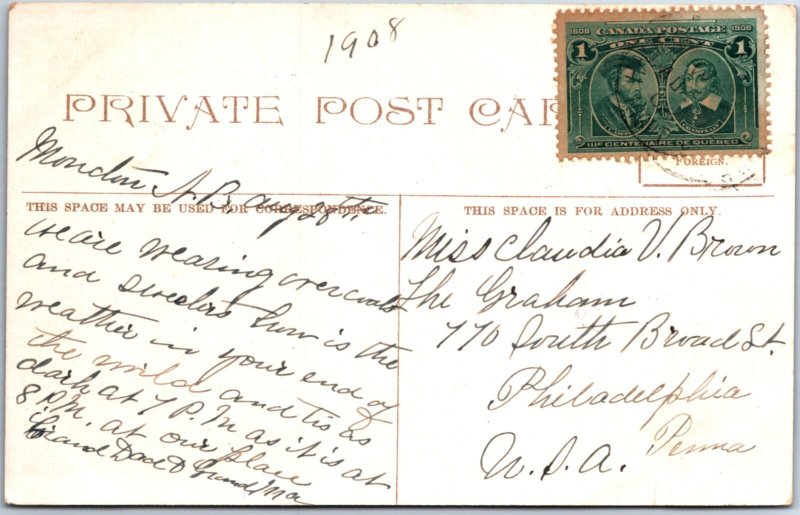 1908
PRIVATE POST CAR
1608 CANADA POSTAGE 1908
1 ONE CENT 1
CARTIER CHAMPLAIN
IIIe CENTENAIRE DE QUÉBEC
FOREIGN.
Moncton N.B. aug 28th.
THIS SPACE MAY BE USED FOR CORRESPONDENCE.
We are wearing overcoats
and sweaters how is the
weather in your end of
the wild and tis as
dark at 7 P.M as it is at
8 P.M. at our place
Grand Dad & Grand Ma
THIS SPACE IS FOR ADDRESS ONLY.
Miss Claudia V. Brown
The Graham
770 South Broad St.
Philadelphia
Penna
U.S.A.